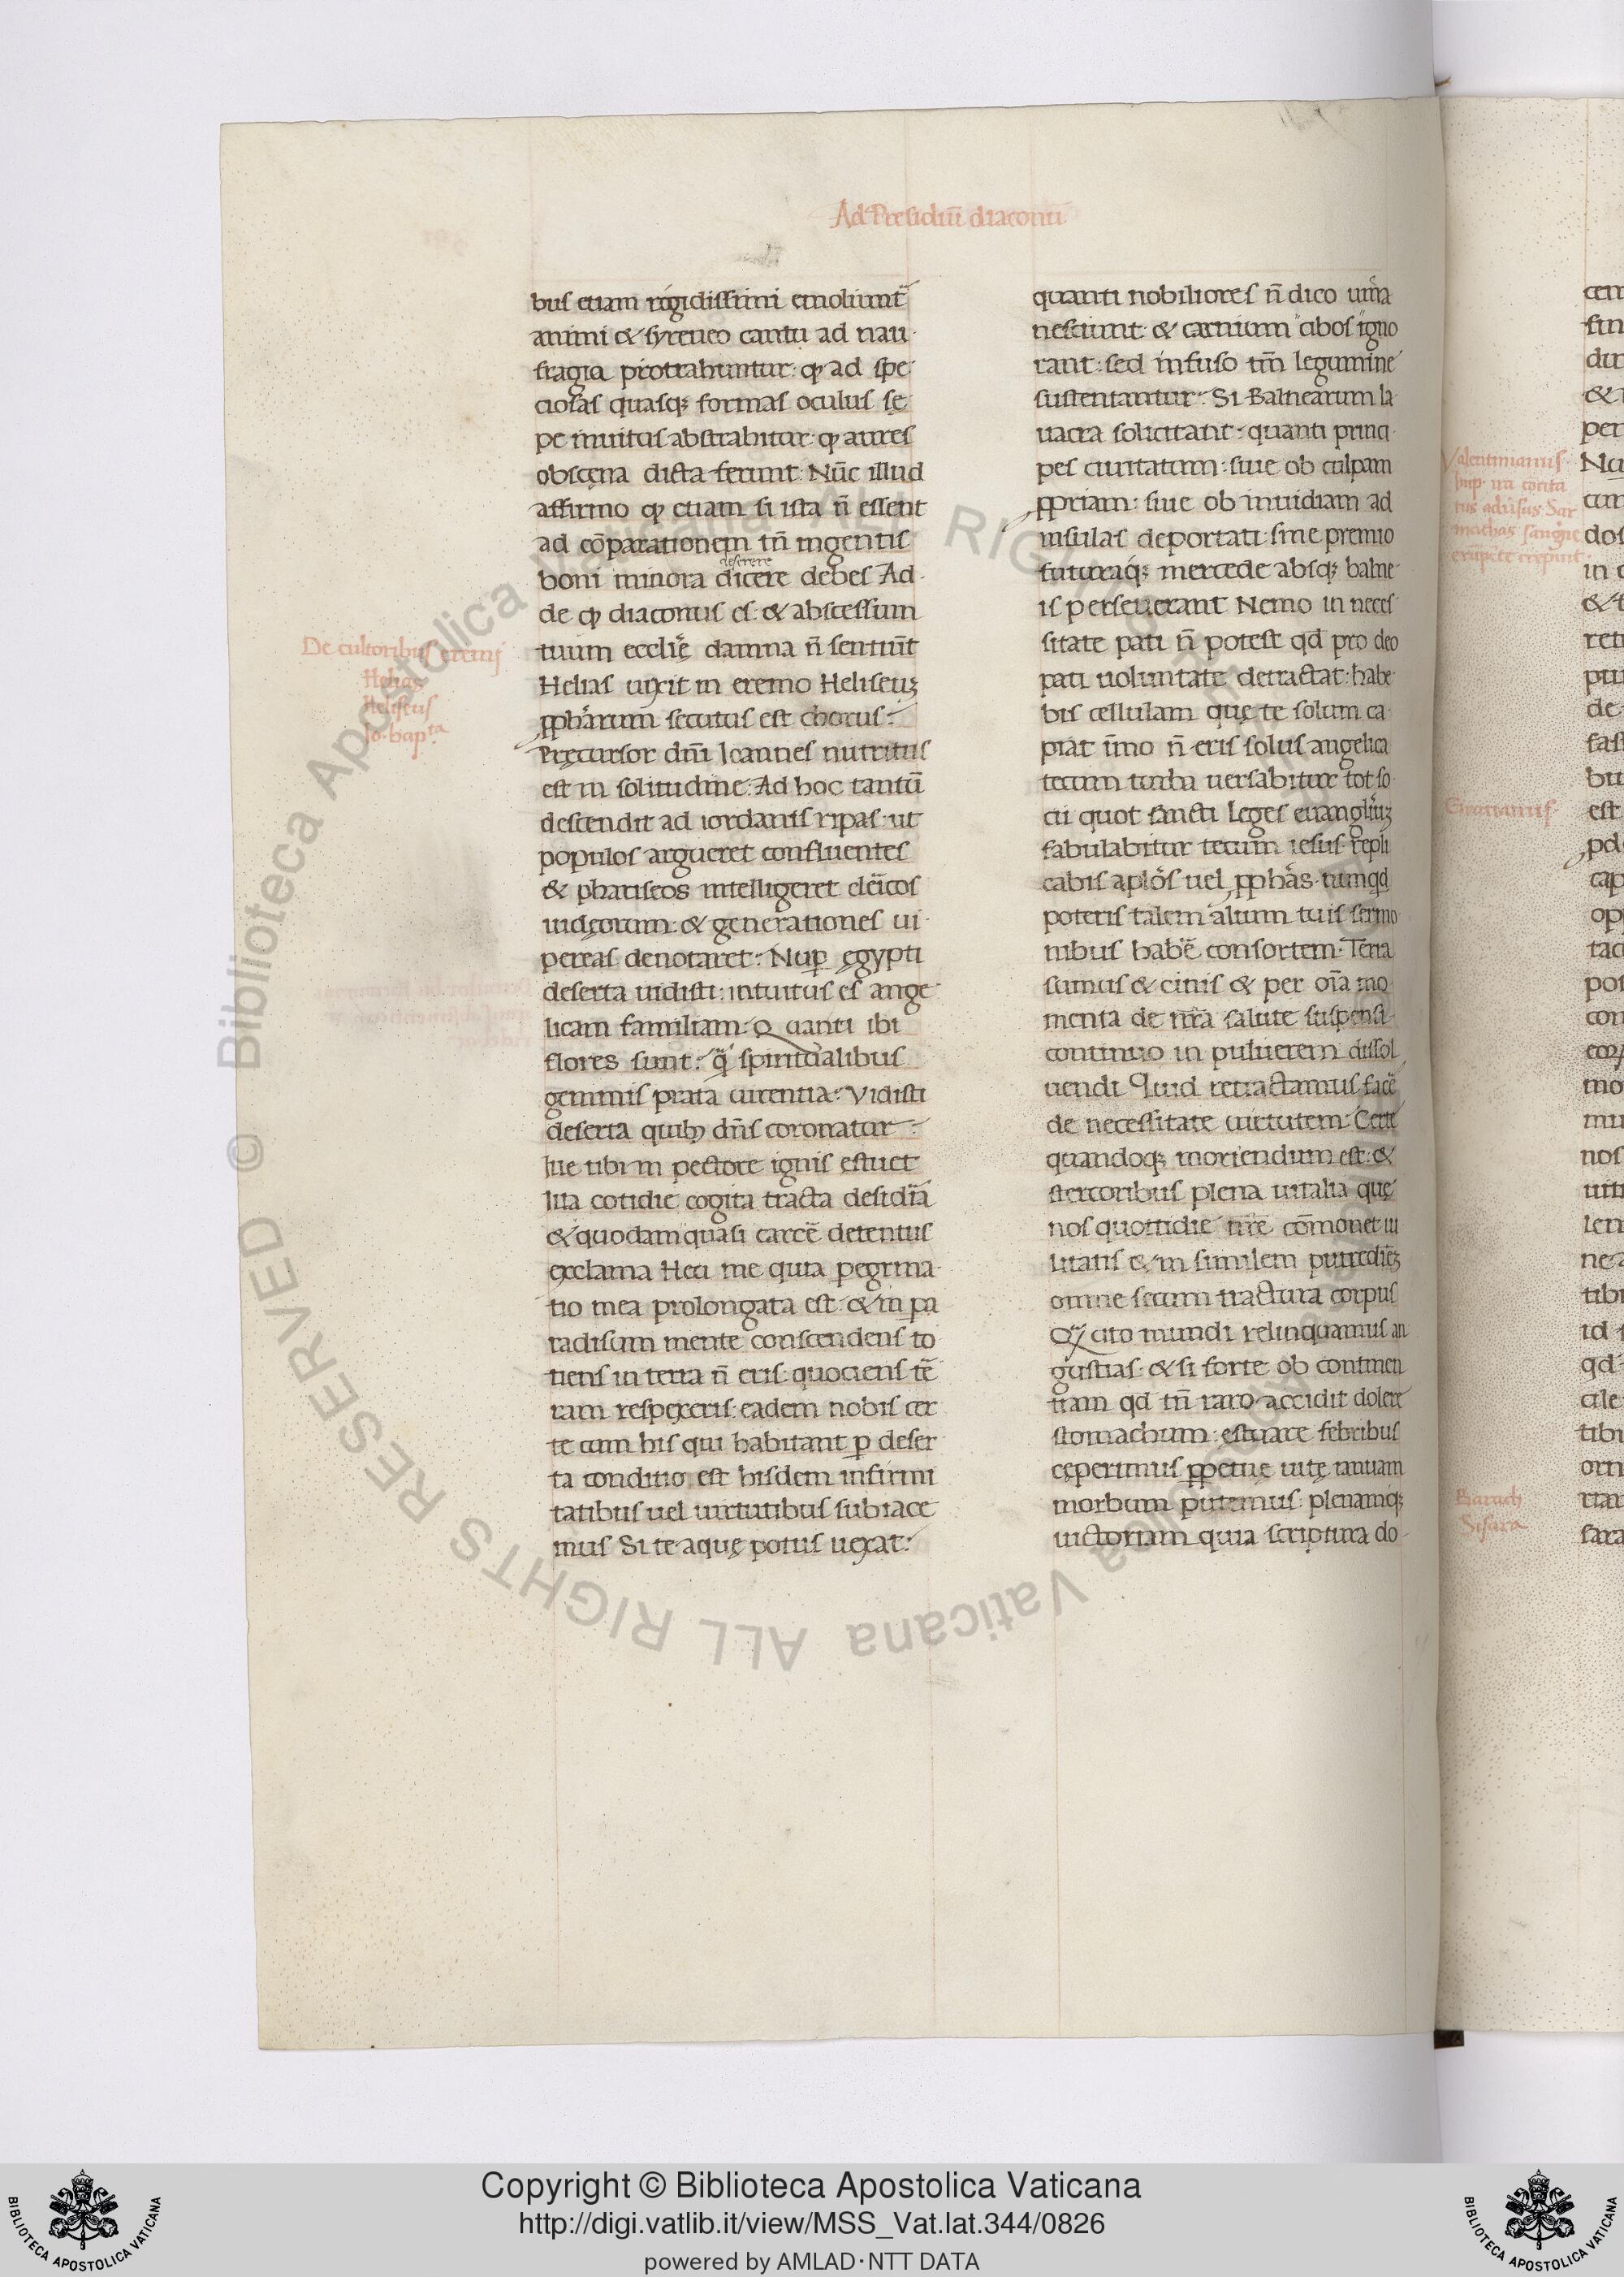 Ad Presidiũ diaconũ
bus etiam rigidissimi emoliunt̃
animi & syreneo cantu ad nau
fragia protrahuntur: ꝙ ad spe
ciosas quasqꝫ formas oculus sę
pe inuitus abstrahitur: ꝙ aures
obscęna dicta ferunt. Nũc illud
affirmo ꝙ etiam si ista ñ essent
ad cõparationem tñ ingentis
deserere
boni minora dicere debes Ad
de ꝙ diaconus es. & abscessum
tuum eccl̃ię damna ñ sentiũt
Helias uixit in eremo Heliseuꝫ
ꝓpharum secutus est chorus:
Pręcursor dñi Ioannes nutritus
est in solitudine: Ad hoc tantũ
descendit ad iordanis ripas ut
populos argueret confluentes
& phariseos intelligeret cleĩcos
iudęorum: & generationes ui
pereas denotaret: Nuꝑ ęgypti
deserta uidisti: intuitus es ange
licam familiam. Quanti ibi
flores sunt: q̃ spiritualibus
gemmis prata uirentia: Vidisti
deserta quibꝫ dñs coronatur:
Iue tibi in pectore ignis ęstuet
Ita cotidie cogita tracta desidĩa
& quodam quasi carcẽ detentus
exclama Heu me quia ꝑegrina
tio mea prolongata est. & in pa
radisum mente conscendens to
tiens in terra ñ eris: quotiens tẽ
ram respexeris: eadem nobis cer
te cum his qui habitant ꝑ deser
ta conditio est hisdem infirmi
tatibus uel uirtutibus subiace
mus Si te aquę potus uexat:
quanti nobiliores ñ dico uina
nesciunt & carnium cibos igno
rant: sed infuso tm̃ legumine
sustentantur: Si Balnearum la
uacra solicitant: quanti princi
pes ciuitatum: siue ob culpam
ꝓpriam: siue ob inuidiam ad
insulas deportati: sine premio
futuraqꝫ mercede absqꝫ balne
is perseuerant Nemo in neces
sitate pati ñ potest qd pro deo
pati uoluntate detractat: habe
bis cellulam quę te solum ca
piat ĩmo ñ eris solus angelica
tecum turba uersabitur tot so
cii quot sancti Leges euangliuꝫ
fabulabitur tecum iesus: repli
cabis aplõs uel ꝓphãs. numqd
poteris talem alium tuis sermo
nibus habẽ consortem. Terra
sumus & cinis & per oĩa mo
menta de nr̃a salute suspensi
continuo in puluerem dissol
uendi Quid retractamus facẽ
de necessitate uirtutem: Certe
quandoqꝫ moriendum est: &
stercoribus plena uitalia quę
nos quottidie nr̃e cõmonet ui
litatis & in similem putredinẽ
omne secum tractura corpus
Q cito mundi relinquamus an
gustias: & si forte ob continen
tiam qd tñ raro accidit dolere
stomachum: ęstuare febribus
cęperimus ꝑpetuę uitę ianuam
morbum putemus: plenamqꝫ
uictoriam quia scriptura do
De cultoribus eremi
Helias
Heliseus
Io. bapta
Valentinianus
Gratianus
Barach
Sisara
Copyright © Biblioteca Apostolica Vaticana
http://digi.vatlib.it/view/MSS_Vat.lat.344/0826
powered by AMLAD·NTT DATA
BIBLIOTECA APOSTOLICA VATICANA
BIBLIOTECA APOSTOLICA VATICANA
© Biblioteca Apostolica Vaticana ALL RIGHTS RESERVED